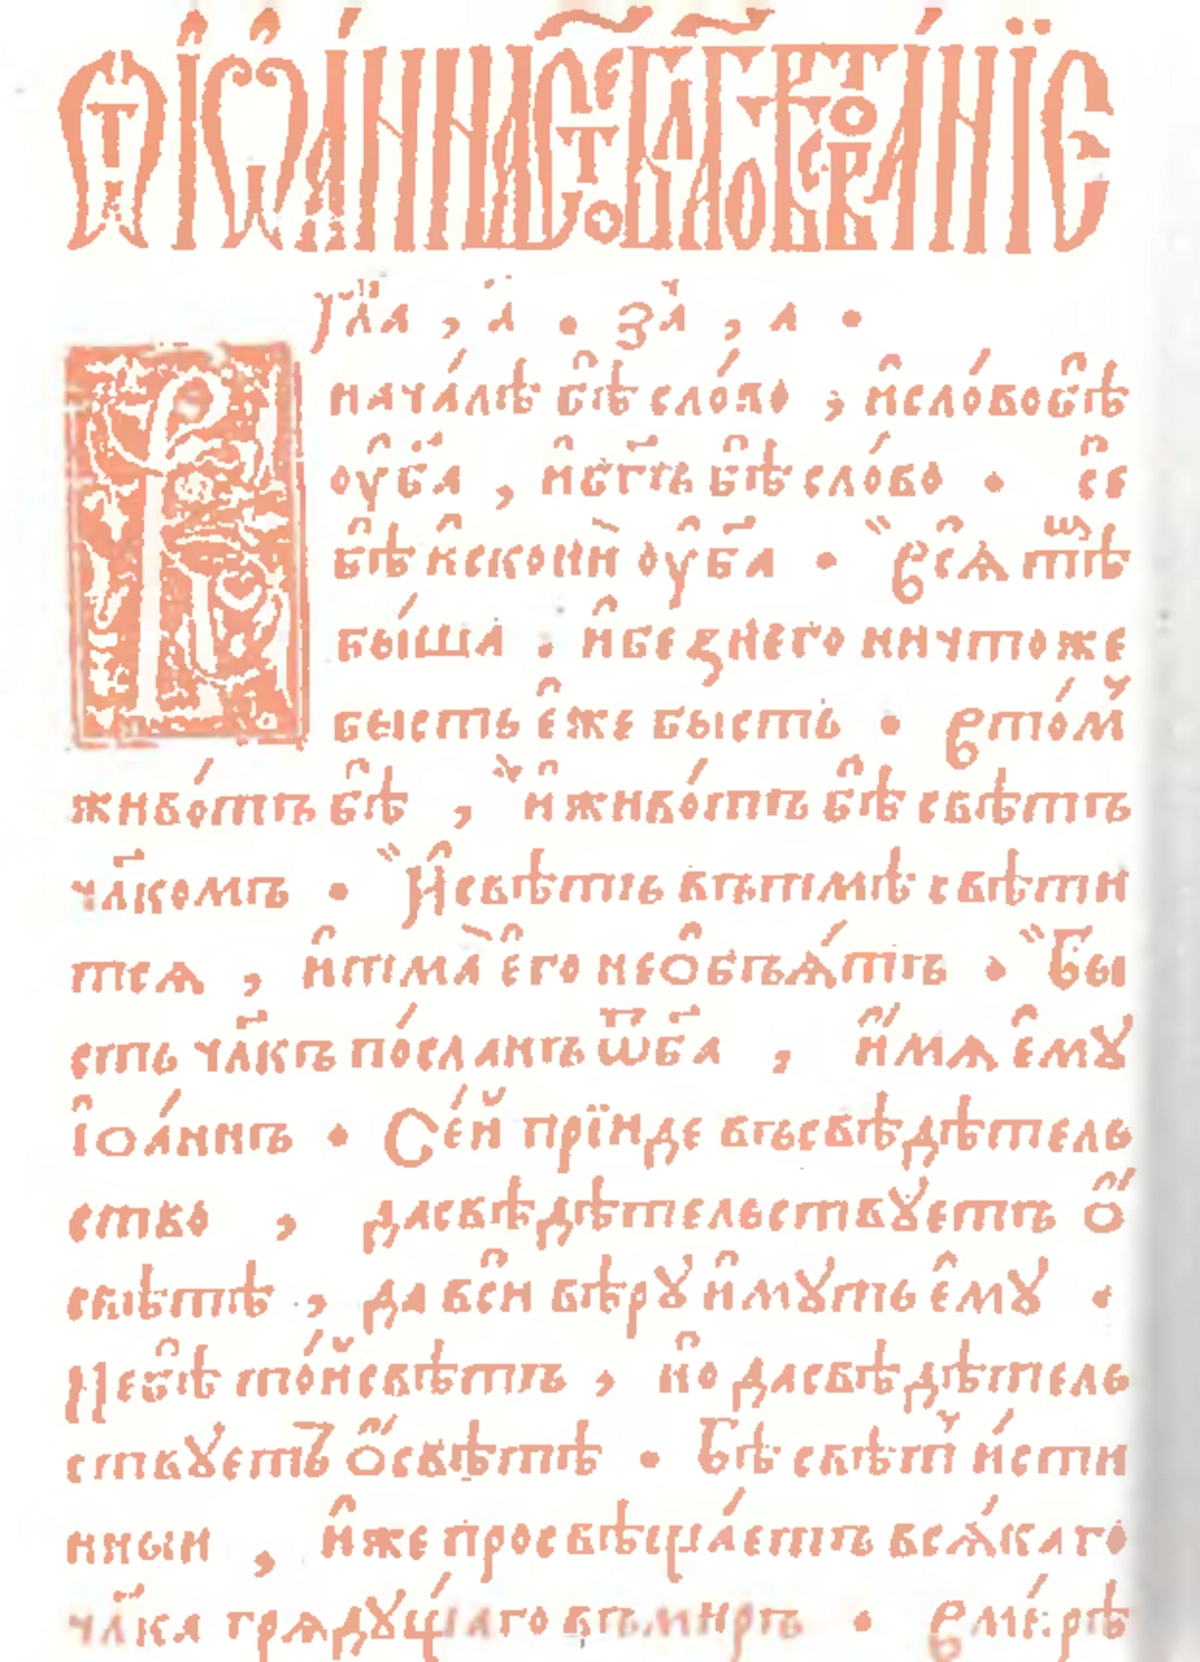 Ѿ іѡа́нна ст҃о бл҃говѣствова́нїе
гл҃ва , а҃ . за҃ч , а .
нача́лѣ бѣ̑ сло́во , и҆сло́вобѣ̑
оу҆бг҃а , и҆бг҃ъ бѣ̑сло́во . се҆
бѣ̑ и҆скони̏ оу҆бг҃а . всѧ̑ тѣⷨ
бы́ша . и҆безнего ничтоже
бысть е҆же бысть . вто́мъ
живо́тъ бѣ̑ , и҆ живо́тъ бѣ̑ свѣтъ
чл҃комъ . И҆свѣтъ вътмѣ свѣти
тсѧ , и҆тма̀ е҆го неѡ҆бъѧ́тъ . Бы
сть чл҃къ по́сланъ ѿбг҃а , и҆́мѧ є҆мꙋ
і҆оа́ннъ . Се́й прїиде въсвѣдѣтель
ство , дасвѣдѣтельствꙋетъ ѻ҆́
свѣтѣ , да вси҆ вѣрꙋ и҆мꙋть є҆мꙋ .
Небѣ̑ то́йсвѣтъ , но҆ дасвѣдѣтель
ствꙋетъ ѻ҆́свѣтѣ . Бѣ свѣтъ и҆́сти
нныи , и҆же просвѣща́етъ всѧ́каго
чл҃ка грѧдꙋщ́аго въмиръ . вми́рѣ